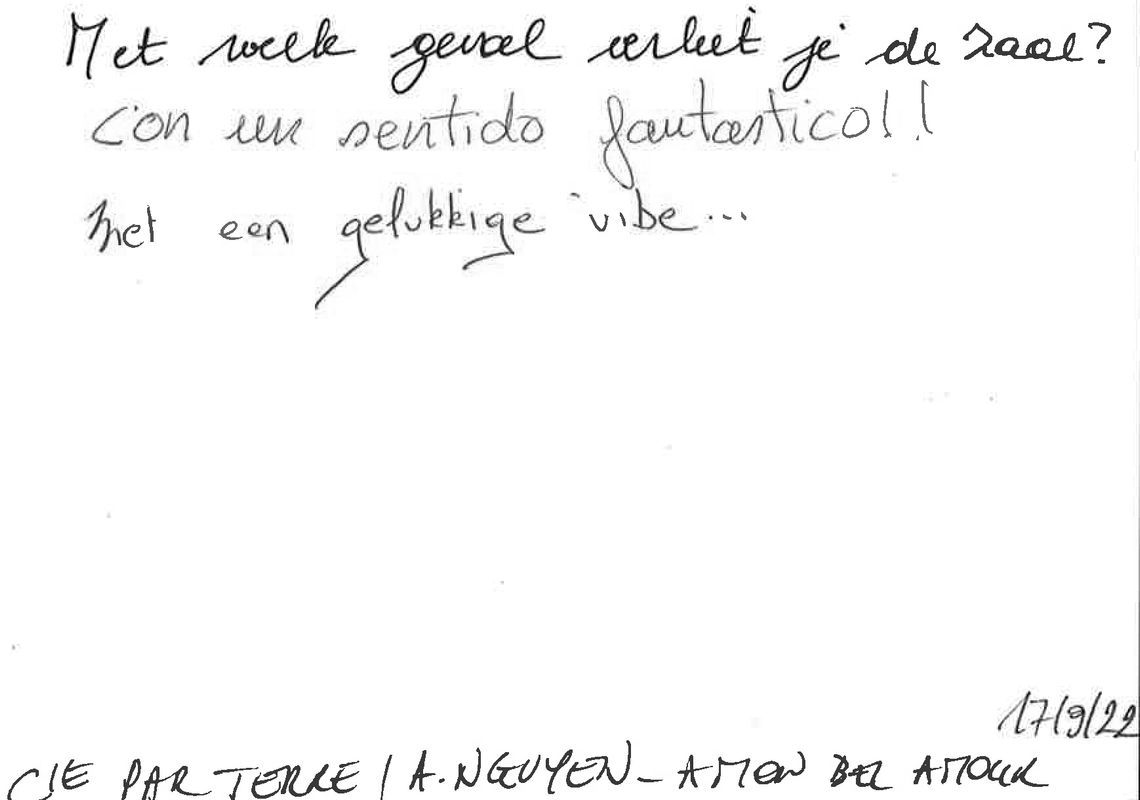 Met welk gevoel verliet je de zaal?
Con un sentido fantastico!!
Met een gelukkige vibe...
17/9/22
CIE PAR TERRE / A. NGUYEN - A MON BEL AMOUR